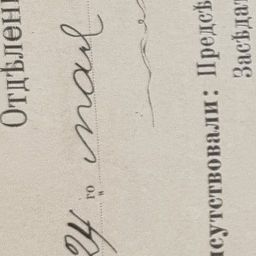 Отдѣлен
24 го мая
исутствовали: Предсѣ
Засѣдат